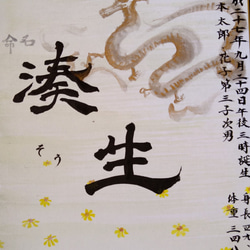 二十七年九月二十四日午後三時誕生
本太郎 花子 第三子 次男
身長
体重 三四
命名
湊生
そう